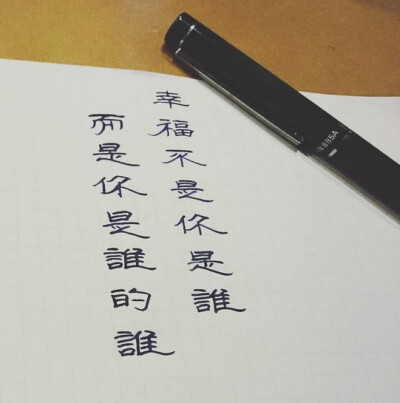 幸福不是你是誰
而是你是誰的誰
885A